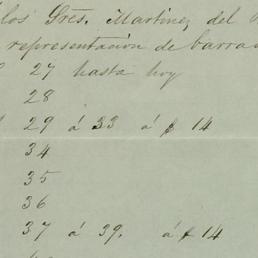 los Sres. Martinez del
representación de barra
27 hasta hoy
28
29 á 33 á $ 14
34
35
36
37 á 39. á $ 14